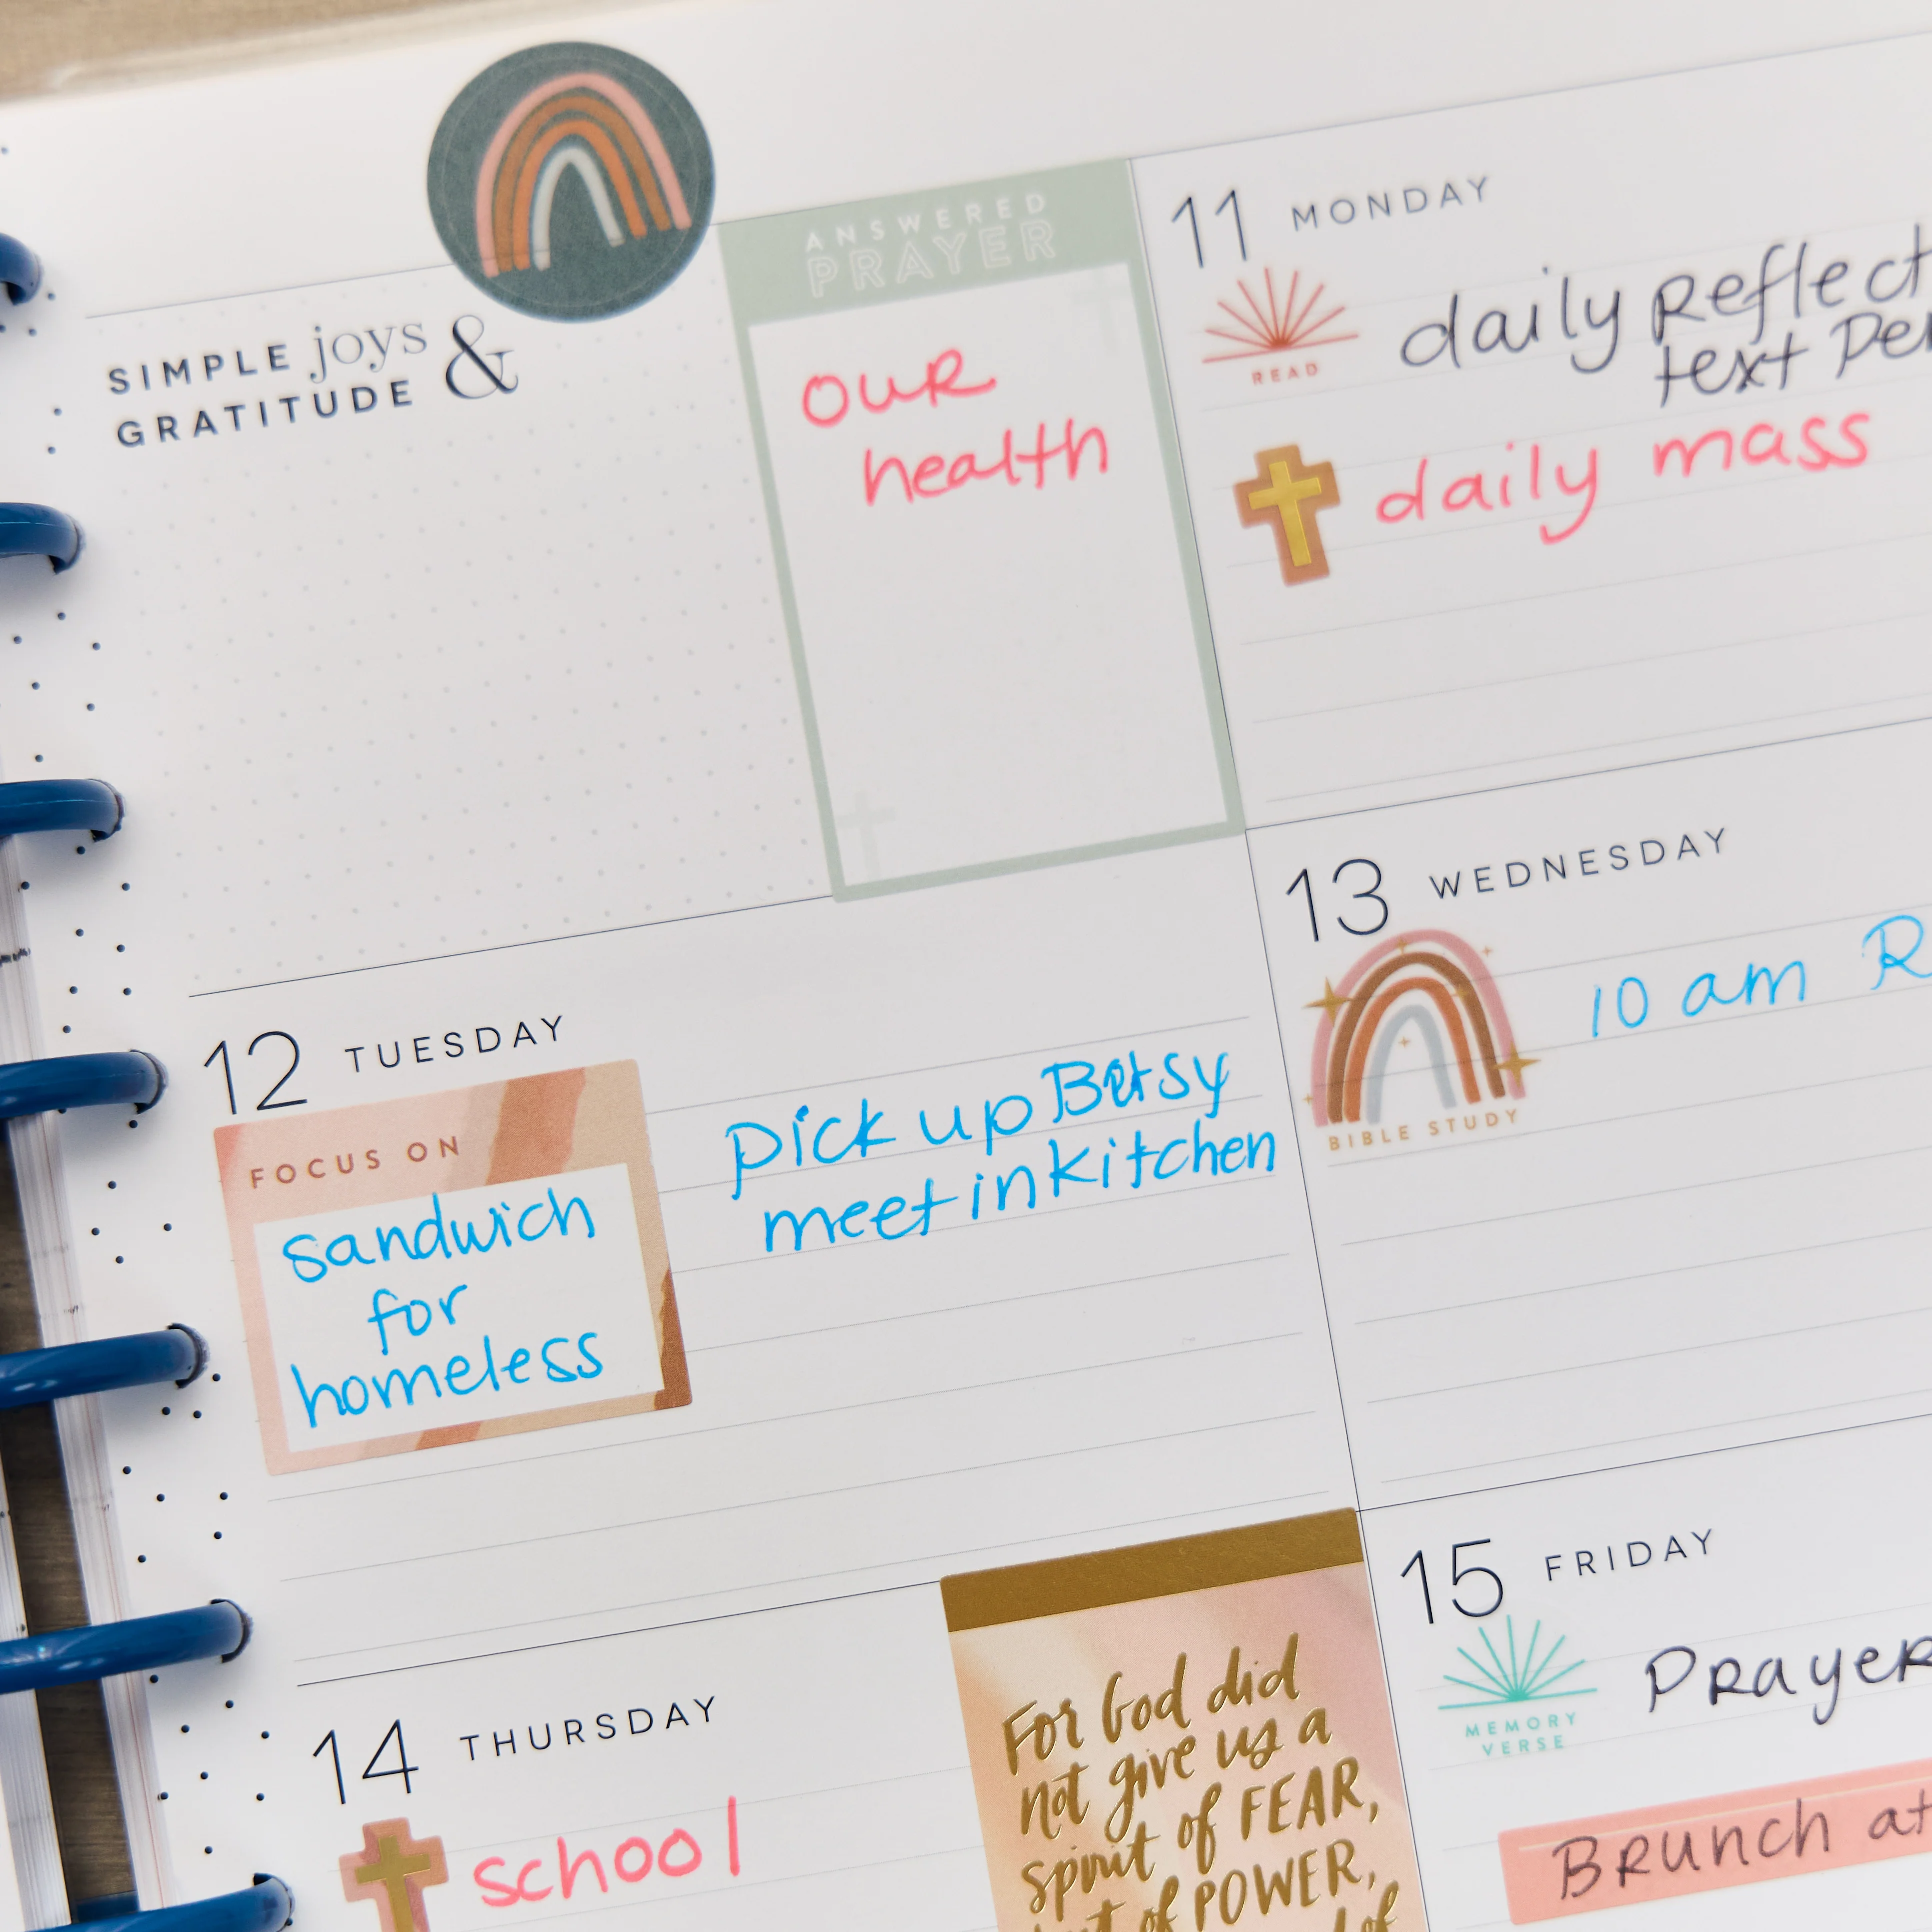 SIMPLE joys &
GRATITUDE
ANSWERED
PRAYER
our
health
11 MONDAY
READ
daily Reflect
text
daily mass
12 TUESDAY
FOCUS ON
sandwich
for
homeless
pick up Betsy
meet in kitchen
13 WEDNESDAY
BIBLE STUDY
10 am
14 THURSDAY
school
For God did
not give us a
spirit of FEAR,
of POWER,
of
15 FRIDAY
MEMORY
VERSE
Prayer
Brunch at